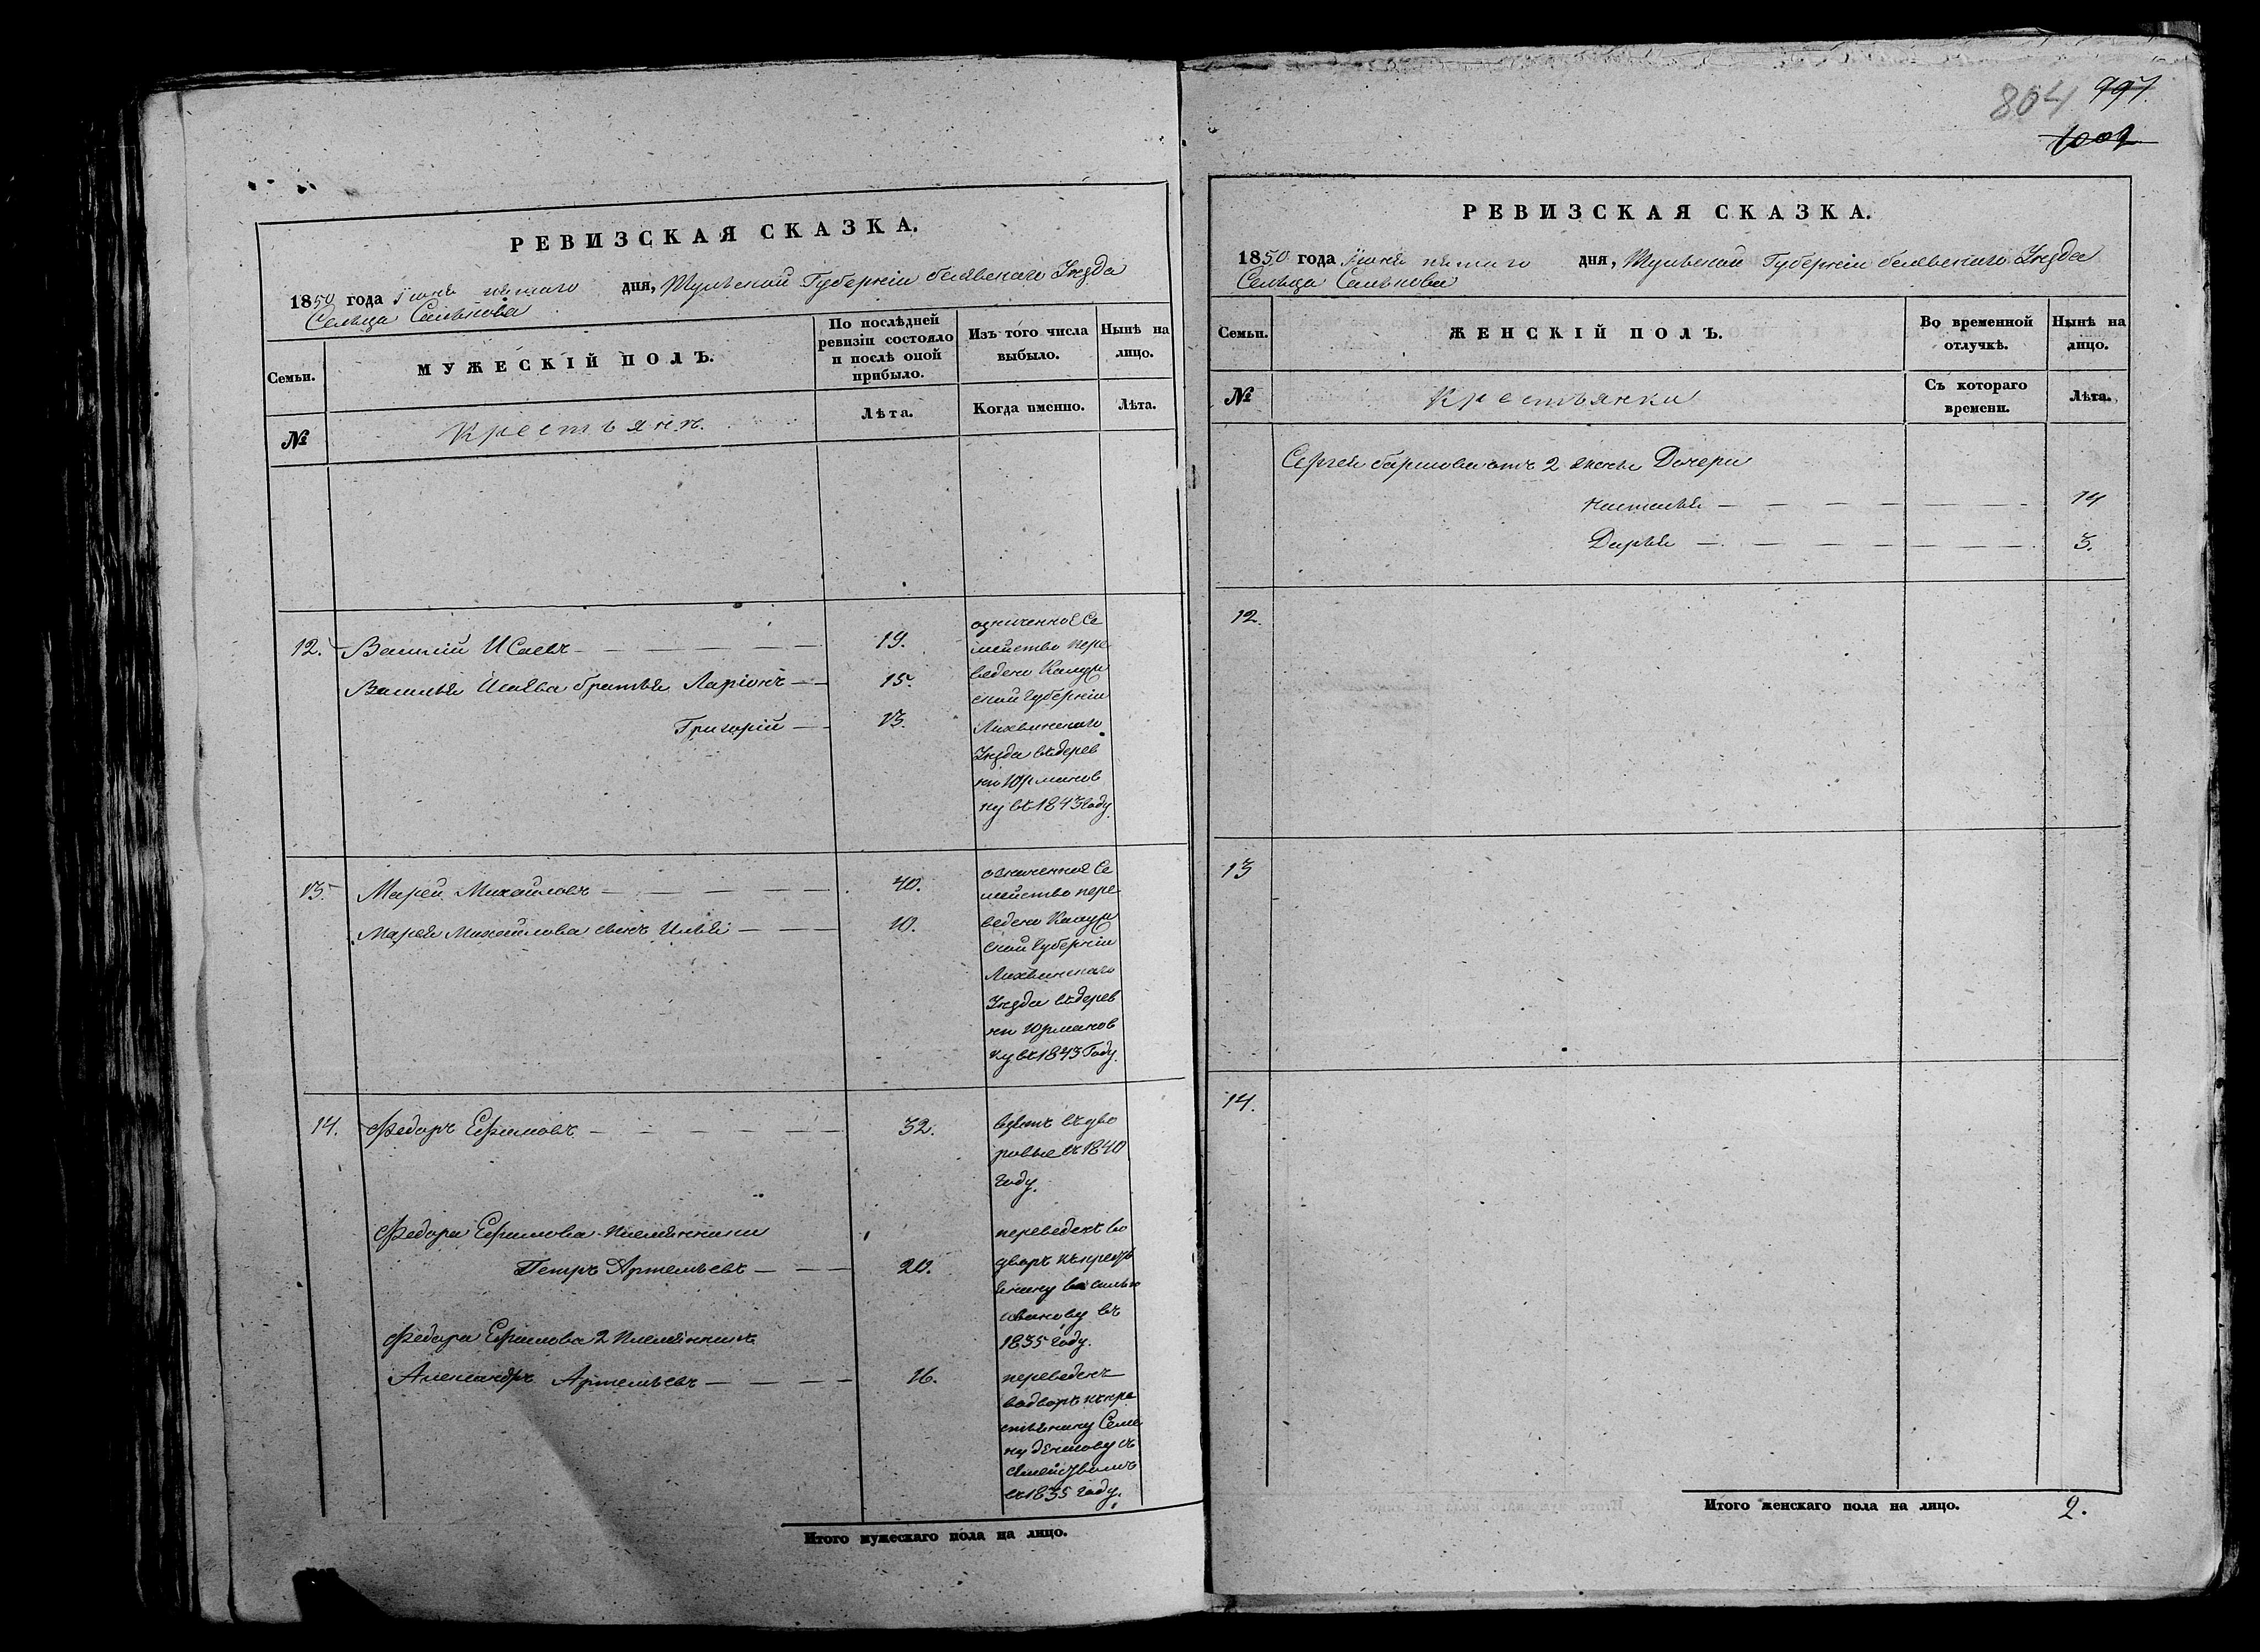 РЕВИЗСКАЯ СКАЗКА.
1850 года Іюня пятаго дня, Тульской Губерніи белевскаго Уезда
Сельца Салькова
Семьи.
МУЖЕСКІЙ ПОЛЪ.
По послѣдней ревизіи состояло и послѣ оной прибыло.
Изъ того числа выбыло.
Нынѣ на лицо.
№
Крестьянъ.
Лѣта.
Когда именно.
Лѣта.
12. Василій Исаевъ 19.
Василья Исаева братья Ларіонъ 15.
Григорій 13.
означенное Се
мейство пере
ведено Калуж
ской губерніи
Лихвинскаго
Уезда въ дерев
ню Юрманов
ку въ 1843 году.
13. Марей Михайловъ 40.
Марея Михайлова сынъ Илья 10.
означенное Се
мейство пере
ведено Калуж
ской губерніи
Лихвинскаго
Уезда въ дерев
ню Юрманов
ку въ 1843 Году.
14. Федоръ Ефимовъ 32.
взятъ въ дво
ровые въ 1840
году.
Федора Ефимова племянники
Петръ Артемьевъ 20.
переведенъ во
дворъ къ крест
янину василью
иванову въ
1835 году.
Федора Ефимова 2 племянникъ
Александръ Артемьевъ 16.
переведенъ
во дворъ къ кре
стьянину Семе
ну
семействомъ
въ 1835 году.
Итого мужескаго пола на лицо.
804 997
1002
РЕВИЗСКАЯ СКАЗКА.
1850 года Іюня пятаго дня, Тульской Губерніи белевскаго Уезда
Сельца Салькова
Семьи.
ЖЕНСКІЙ ПОЛЪ.
Во временной отлучкѣ.
Нынѣ на лицо.
№
Крестьянки
Съ котораго времени.
Лѣта.
Сергея отъ 2 жены Дочери
наталья 14
Дарья 3.
12.
13
14.
Итого женскаго пола на лицо. 2.